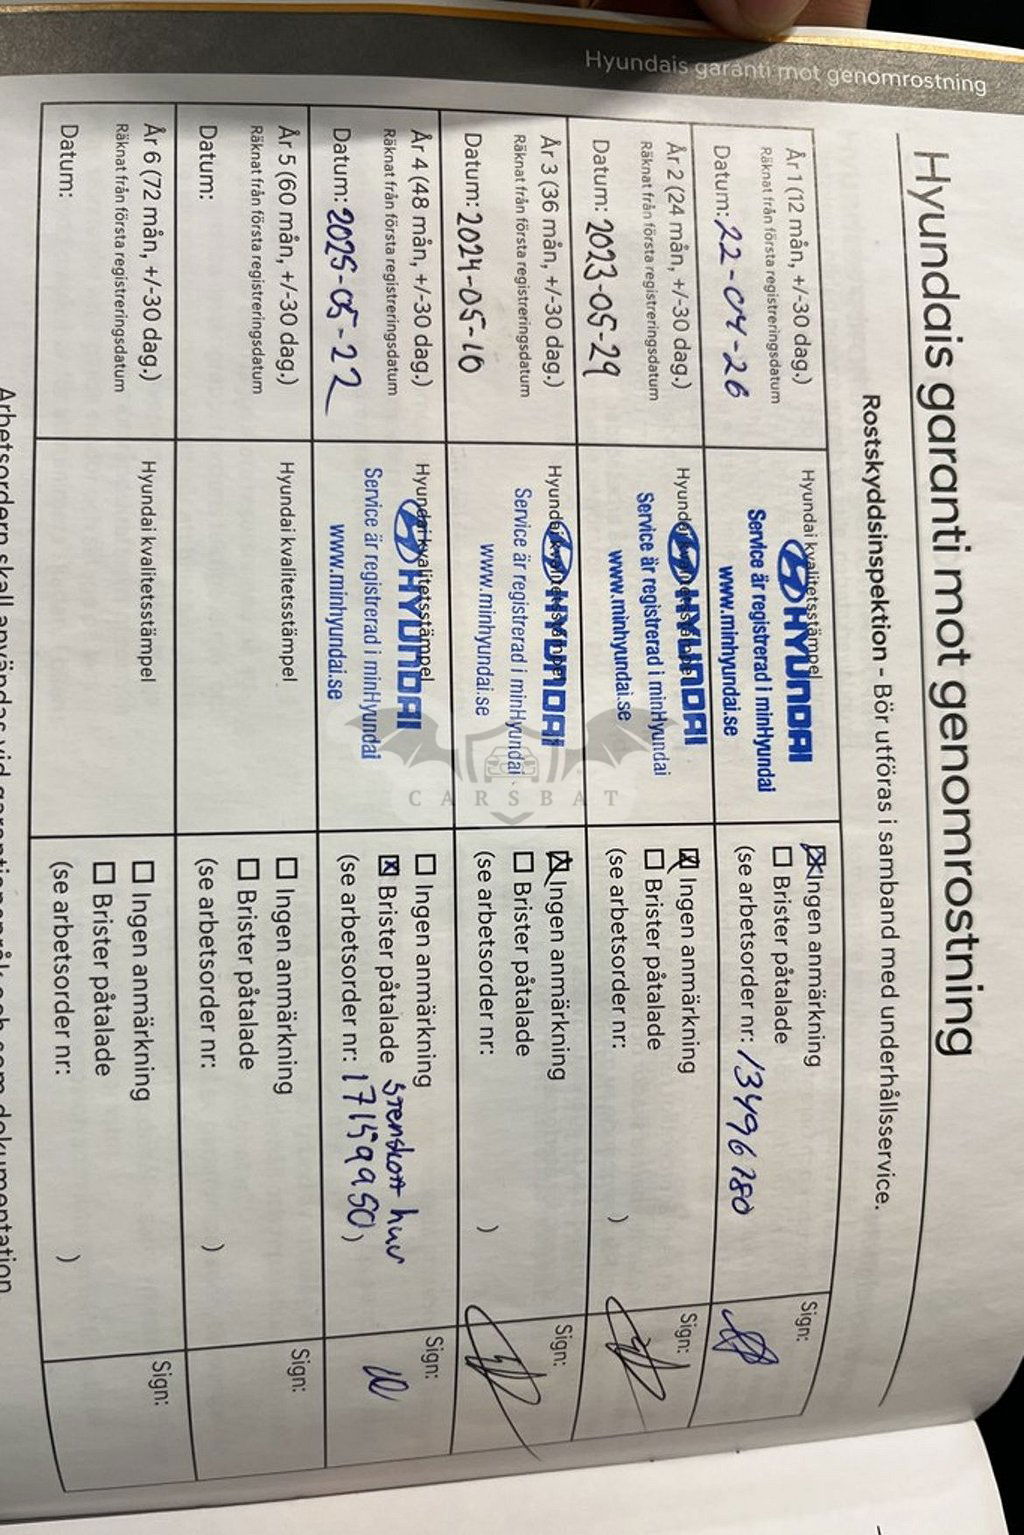 Hyundais garanti mot genomrostning
Hyundais garanti mot genomrostning
Rostskyddsinspektion - Bör utföras i samband med underhållsservice.
År 1 (12 mån, +/-30 dag.)
Räknat från första registreringsdatum
Datum: 22-04-26
Hyundai kvalitetsstämpel
HYUNDAI
Service är registrerad i minHyundai
www.minhyundai.se
Ingen anmärkning
Brister påtalade
(se arbetsorder nr: 13496780
Sign:
År 2 (24 mån, +/-30 dag.)
Räknat från första registreringsdatum
Datum: 2023-05-29
Hyundai kvalitetsstämpel
HYUNDAI
Service är registrerad i minHyundai
www.minhyundai.se
Ingen anmärkning
Brister påtalade
(se arbetsorder nr: )
Sign:
År 3 (36 mån, +/-30 dag.)
Räknat från första registreringsdatum
Datum: 2024-05-10
Hyundai kvalitetsstämpel
HYUNDAI
Service är registrerad i minHyundai
www.minhyundai.se
Ingen anmärkning
Brister påtalade
(se arbetsorder nr: )
Sign:
År 4 (48 mån, +/-30 dag.)
Räknat från första registreringsdatum
Datum: 2025-05-22
Hyundai kvalitetsstämpel
HYUNDAI
Service är registrerad i minHyundai
www.minhyundai.se
Ingen anmärkning
Brister påtalade stenskott huv
(se arbetsorder nr: 17159950)
Sign:
År 5 (60 mån, +/-30 dag.)
Räknat från första registreringsdatum
Datum:
Hyundai kvalitetsstämpel
Ingen anmärkning
Brister påtalade
(se arbetsorder nr: )
Sign:
År 6 (72 mån, +/-30 dag.)
Räknat från första registreringsdatum
Datum:
Hyundai kvalitetsstämpel
Ingen anmärkning
Brister påtalade
(se arbetsorder nr: )
Sign:
Arbetsordern skall användas vid garantianspråk och som dokumentation.
CARSBAT